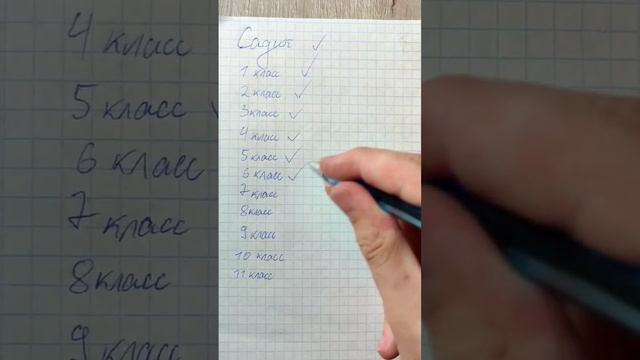 Садик ✓
1 класс ✓
2 класс ✓
3 класс ✓
4 класс ✓
5 класс ✓
6 класс ✓
7 класс
8 класс
9 класс
10 класс
11 класс
4 класс
5 класс
6 класс
7 класс
8 класс
9 класс